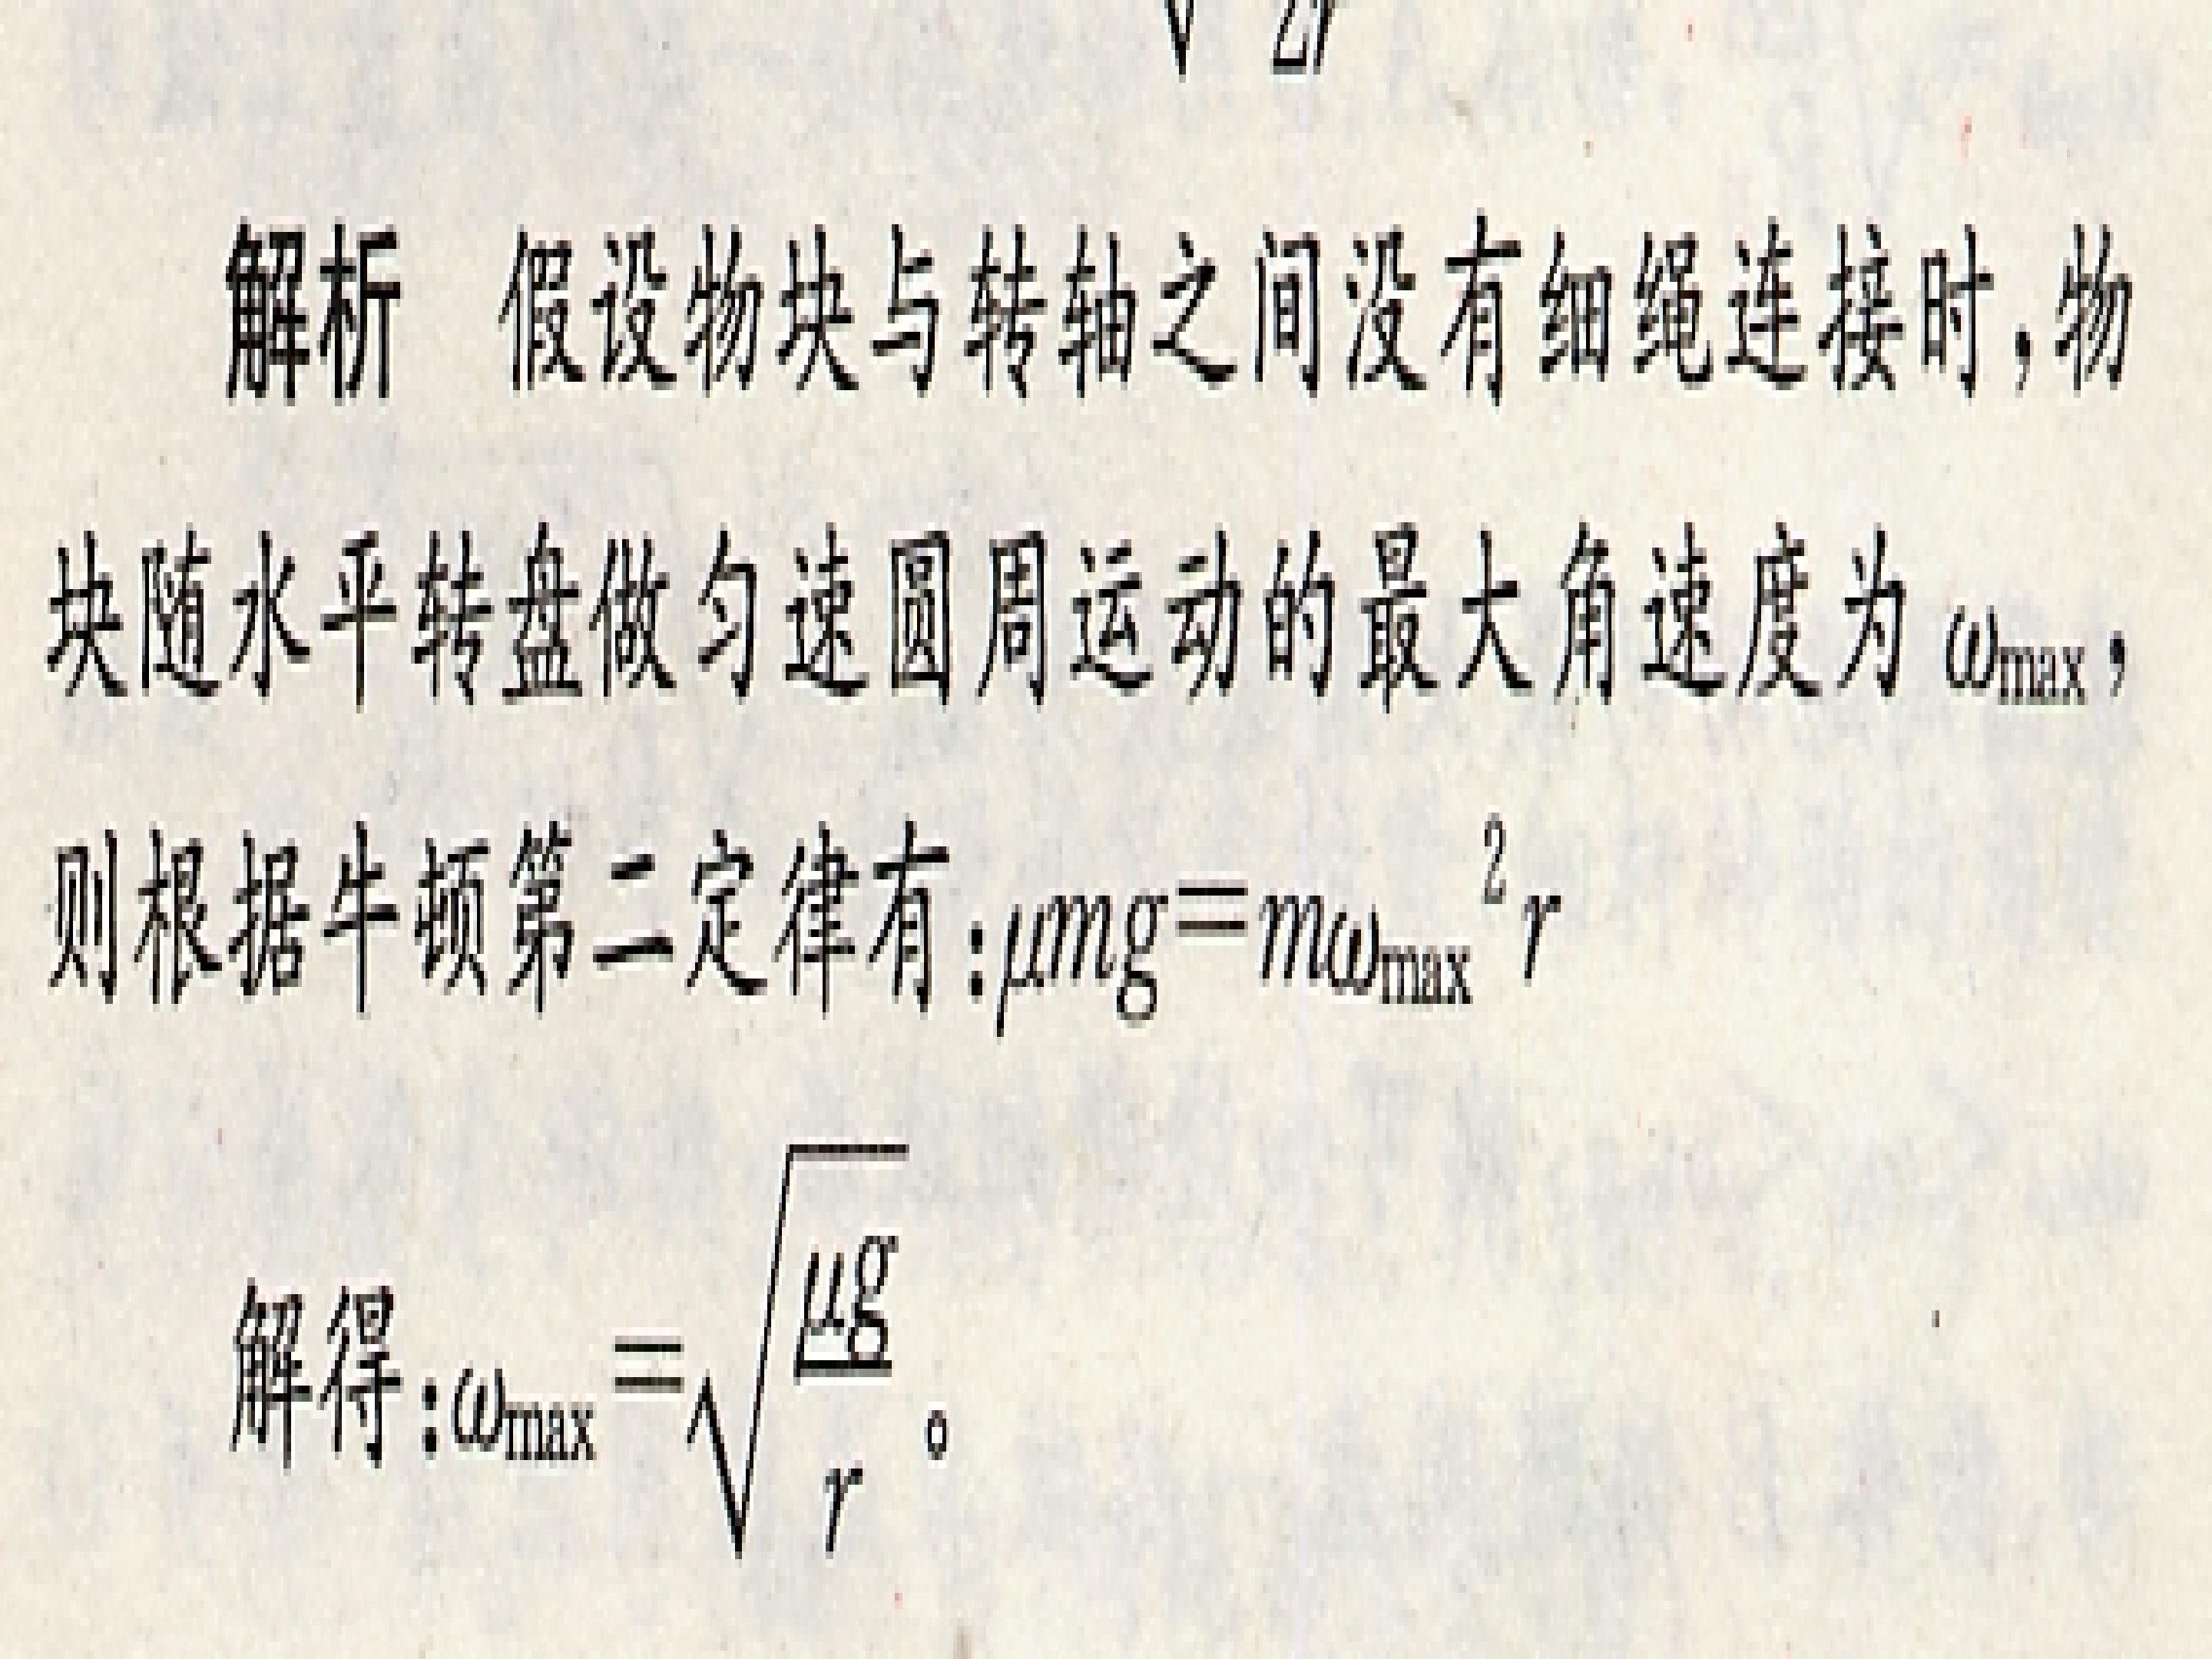 √ 2r
解析 假设物块与转轴之间没有细绳连接时,物
块随水平转盘做匀速圆周运动的最大角速度为 ωmax,
则根据牛顿第二定律有:μmg=mωmax²r
解得:ωmax=√(μg/r)。